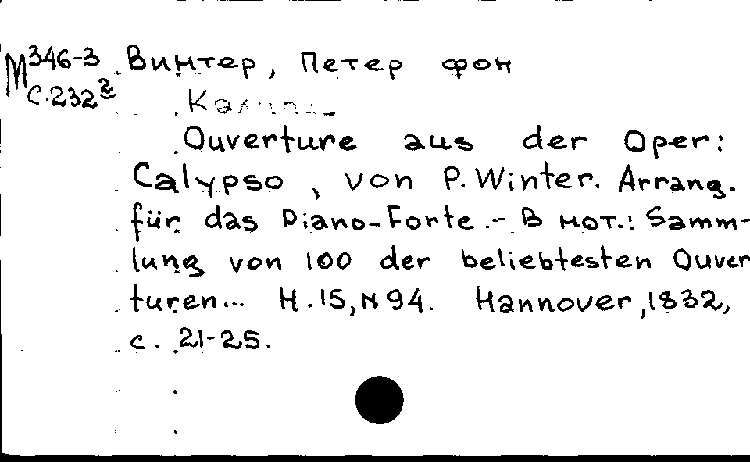 М 346-3 Винтер, Петер фон
С.232²
Ouverture aus der Oper:
Calypso, von P. Winter. Arrang.
für das Piano-Forte. - В нот.: Samm-
lung von 100 der beliebtesten Ouver
turen... H.15, N 94. Hannover, 1832,
с. 21-25.